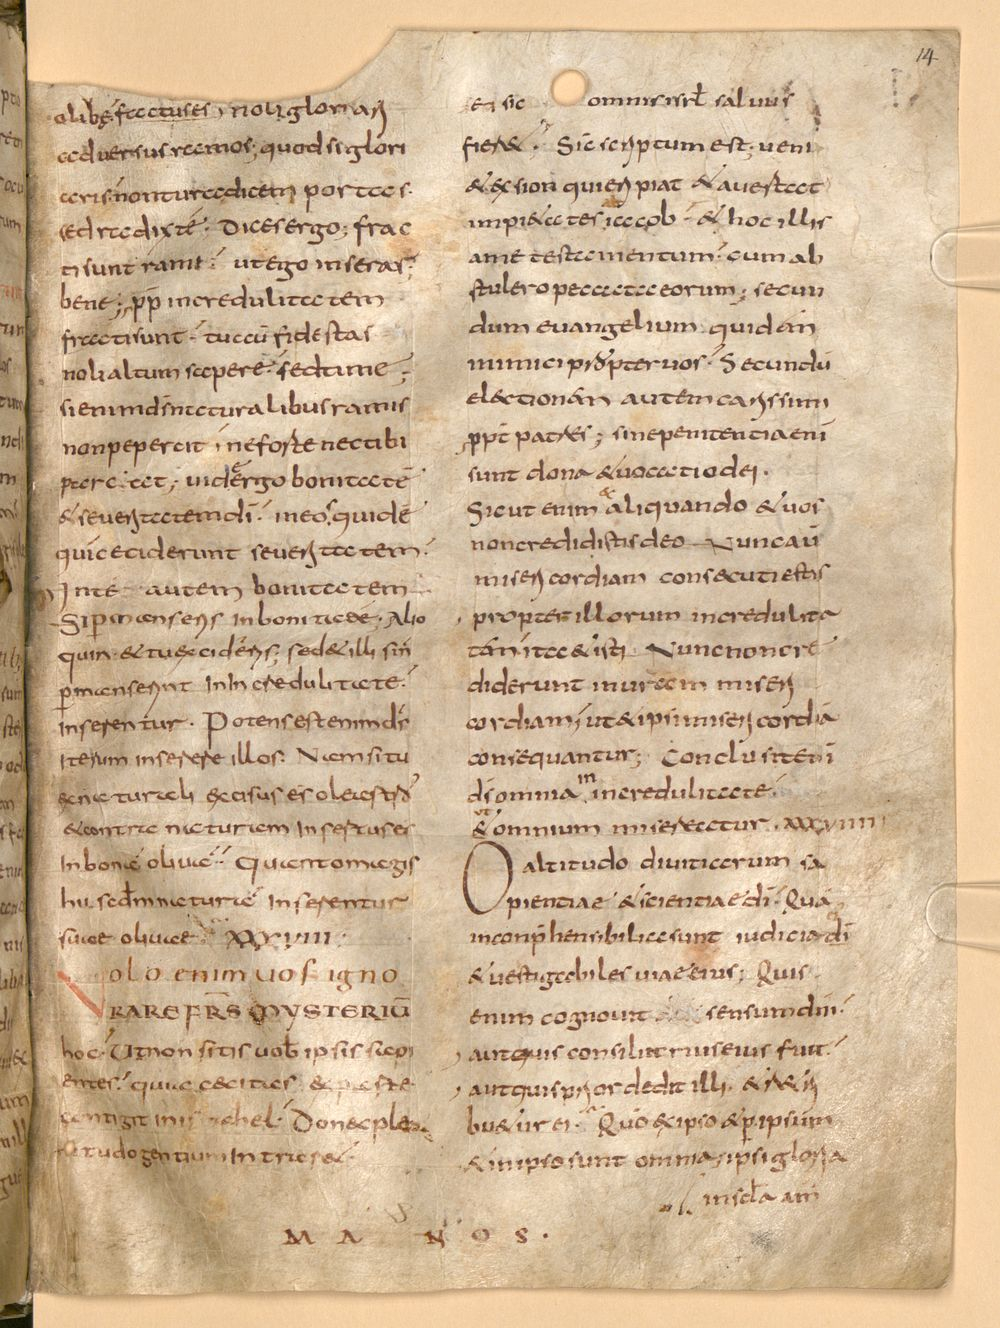 14
olibę factus es noli gloriari
adversus ramos; quod si glori
aris non tu radicem portas.
sed radix te. Dices ergo; frac
ti sunt rami. ut ego inserar;
bene; pp̄ incredulitatem
fracti sunt. tu aū fide stas
noli altum sapere. sed time;
si enim ds̄ naturalibus ramis
non pepercit ne forte nec tibi
parcat; vide ergo bonitatē
& severitatem dī. in eos quidē
qui ceciderunt severitatem.
In te autem bonitatem
Si permanseris in bonitate. Alio
quin & tu excideris; sed & illi si n̄
permanserint in incredulitate.
inserentur. Potens est enim ds̄
iterum inserere illos. Nam si tu
ex naturali excisus es oleastro
& contra naturam insertus es
in bonā olivā. Quanto magis
hii sed̄m naturā inserentur
suae olivae. XXXVIII
Volo enim vos igno
RARE FRS̄ MYSTERIŪ
hoc. Ut non sitis vob̄ ipsis sapi
entes. quia caecitas ex parte
contigit in israhel. Donec ple
nitudo gentium intraret.
et sic omnis isrl̄ salvus
fieret. Sic scriptum est; veni
& ex sion qui eripiat & avertat
impietates iacob. & hoc illis
a me testamentum. cum ab
stulero peccata eorum; secun
dum evangelium quidān
inimici propter vos. Secundū
electionān autem carissimi
ppt̄ patres; sine penitentia enī
sunt dona & vocatio dei.
Sicut enim & aliquando & vos
non credidistis deo Nunc aū
misericordiam consecuti estis
propter illorum incredulita
tān ita & isti Nunc non cre
diderunt in vr̄am miseri
cordiam ut & ipsi misericordiā
consequantur; Conclusit enī
ds̄ omnia in incredulitate.
ut omnium misereatur. XXXVIIII
O altitudo divitiarum sa
pientiae & scientiae dī. Quā
inconp̄hensibilia sunt iudicia dī
& vestigabiles viae eius; Quis
enim cognovit sensum dn̄i.
aut quis consiliarius eius fuit.
aut quis prior dedit illi. & retri
buetur ei. Quō ex ipso & per ipsum
& in ipso sunt omnia, ipsi gloria
in scl̄a am̄
MA NOS.